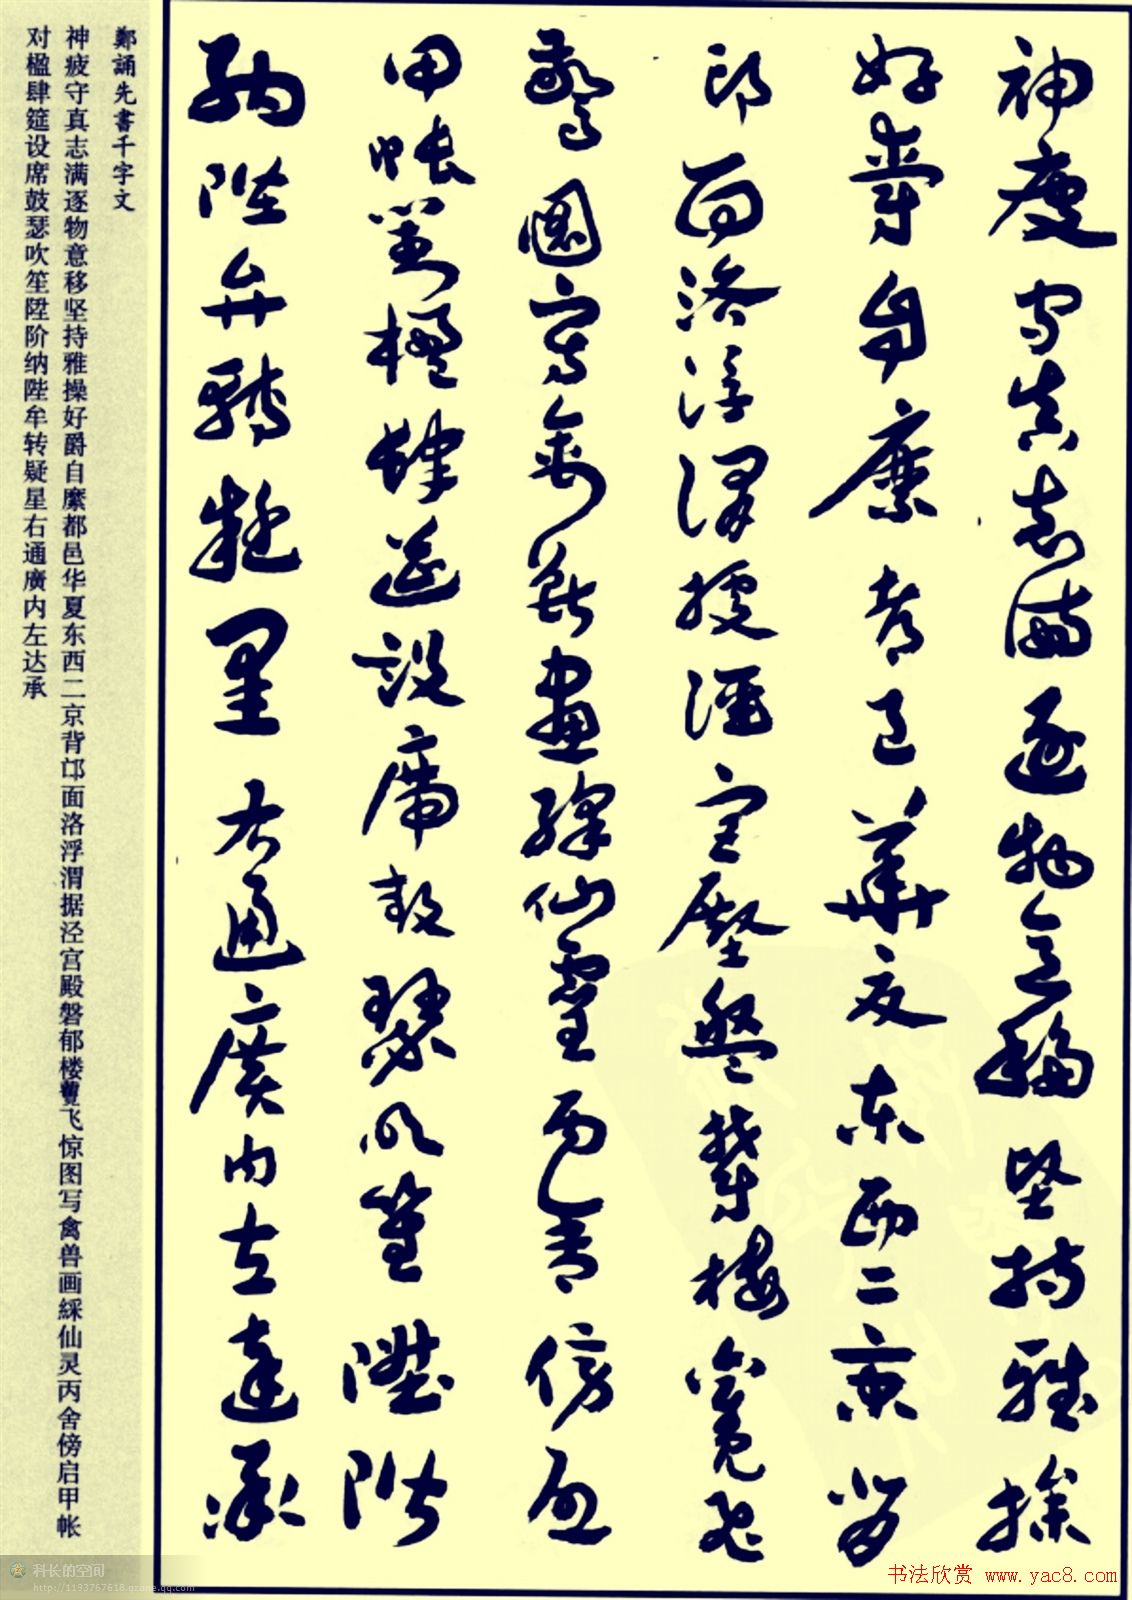 神疲守真志滿逐物意移堅持雅操
好爵自縻都邑華夏東西二京背
邙面洛浮渭據涇宮殿盤鬱樓觀飛
驚圖寫禽獸畫綵仙靈丙舍傍啟
甲帳對楹肆筵設席鼓瑟吹笙陞階
納陛弁轉疑星右通廣內左達承
鄭誦先書千字文
神疲守真志满逐物意移坚持雅操好爵自縻都邑华夏东西二京背邙面洛浮渭据泾宫殿磐郁楼飞惊图写禽兽画綵仙灵丙舍傍启甲帐
对楹肆筵设席鼓瑟吹笙陞阶纳陛牟转疑星右通廣内左达承
科长的空间
http://1193767618.qzone.qq.com
书法欣赏 www.yac8.com